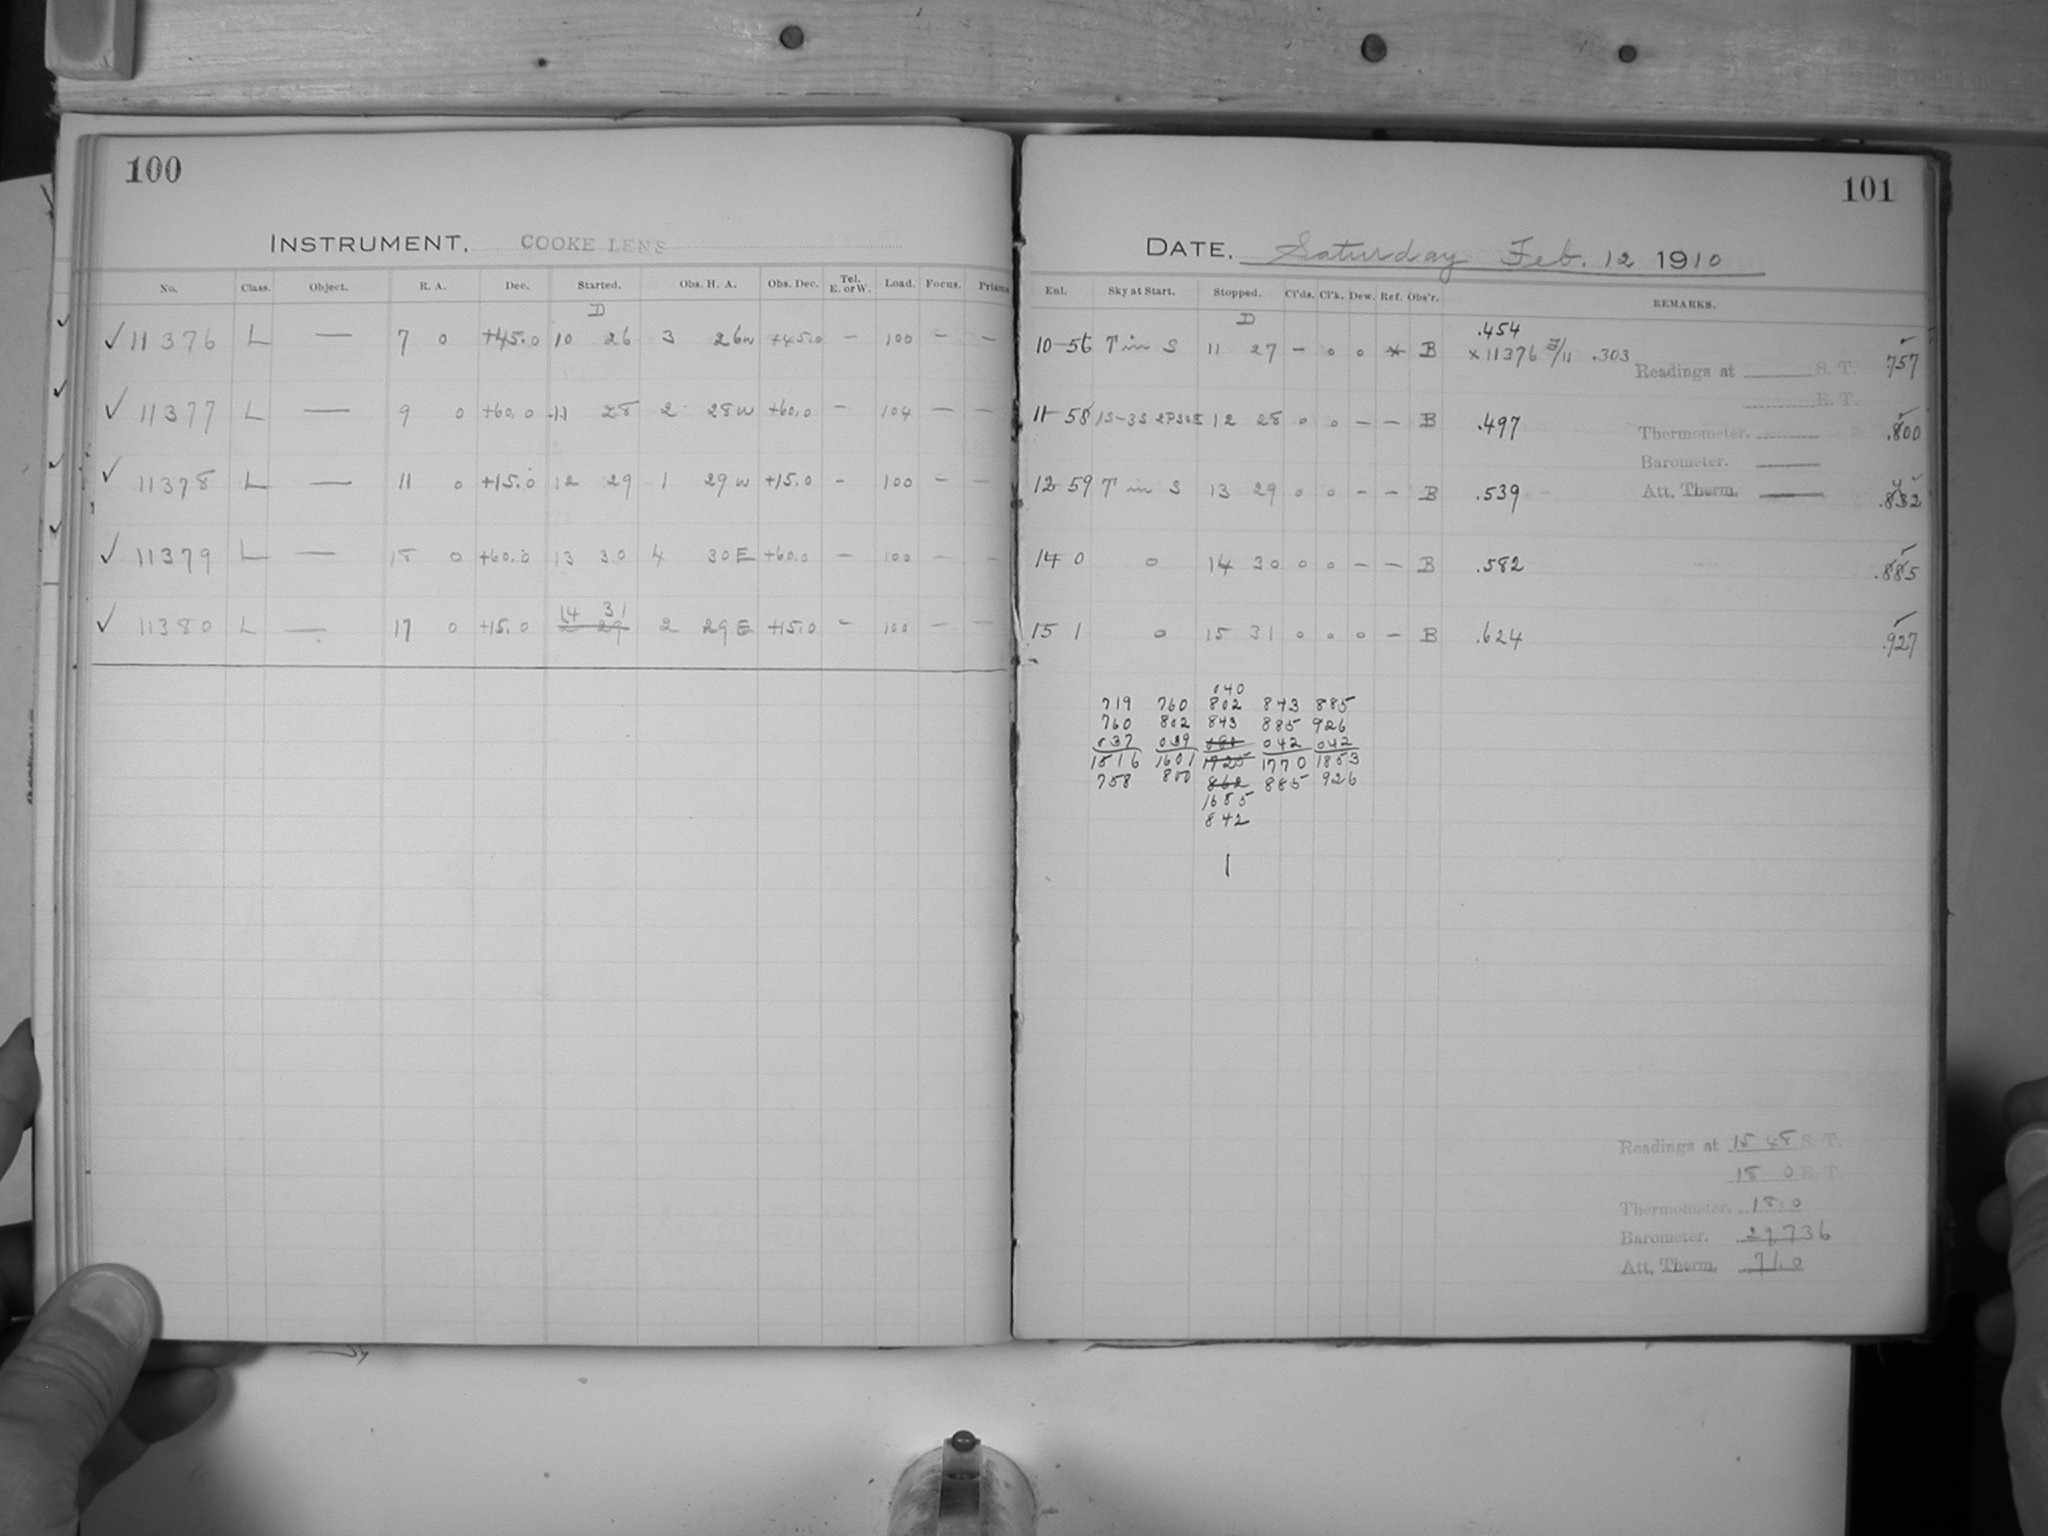 100
INSTRUMENT. COOKE LENS
No. Class. Object. R. A. Dec. Started. Obs. H. A. Obs. Dec. Tel. E. or W. Load. Focus. Prisms
D
✓ 11376 L — 7 0 +45.0 10 26 3 26w +45.0 — 100 — —
✓ 11377 L — 9 0 +60.0 11 28 2 28w +60.0 — 104 — —
✓ 11378 L — 11 0 +15.0 12 29 1 29w +15.0 — 100 — —
✓ 11379 L — 18 0 +60.0 13 30 4 30E +60.0 — 100 — —
14 31
✓ 11380 L — 17 0 +15.0 2 29 2 29E +15.0 — 100 — —
101
DATE. Saturday Feb. 12 1910
Enl. Sky at Start. Stopped. Cl'ds. Cl'k. Dew. Ref. Obs'r. REMARKS.
D
.454
10-56 T in S 11 27 — 0 0 * B x 11376 3/11 .303 .757
Readings at S. T.
E. T.
11-58 1S-3S 12 28 0 0 — — B .497 .800
Thermometer.
Barometer.
12-59 T in S 13 29 0 0 — — B .539 .832
Att. Therm.
14 0 0 14 30 0 0 — — B .582 .885
15 1 0 15 31 0 0 0 — B .624 .927
040
719 760 802 843 885
760 802 843 885 926
037 039 042 042
1516 1601 1725 1770 1853
758 800 862 885 926
1685
842
Readings at 15 48 S. T.
18 0 E. T.
Thermometer. 18.0
Barometer. 29.736
Att. Therm. 71.0